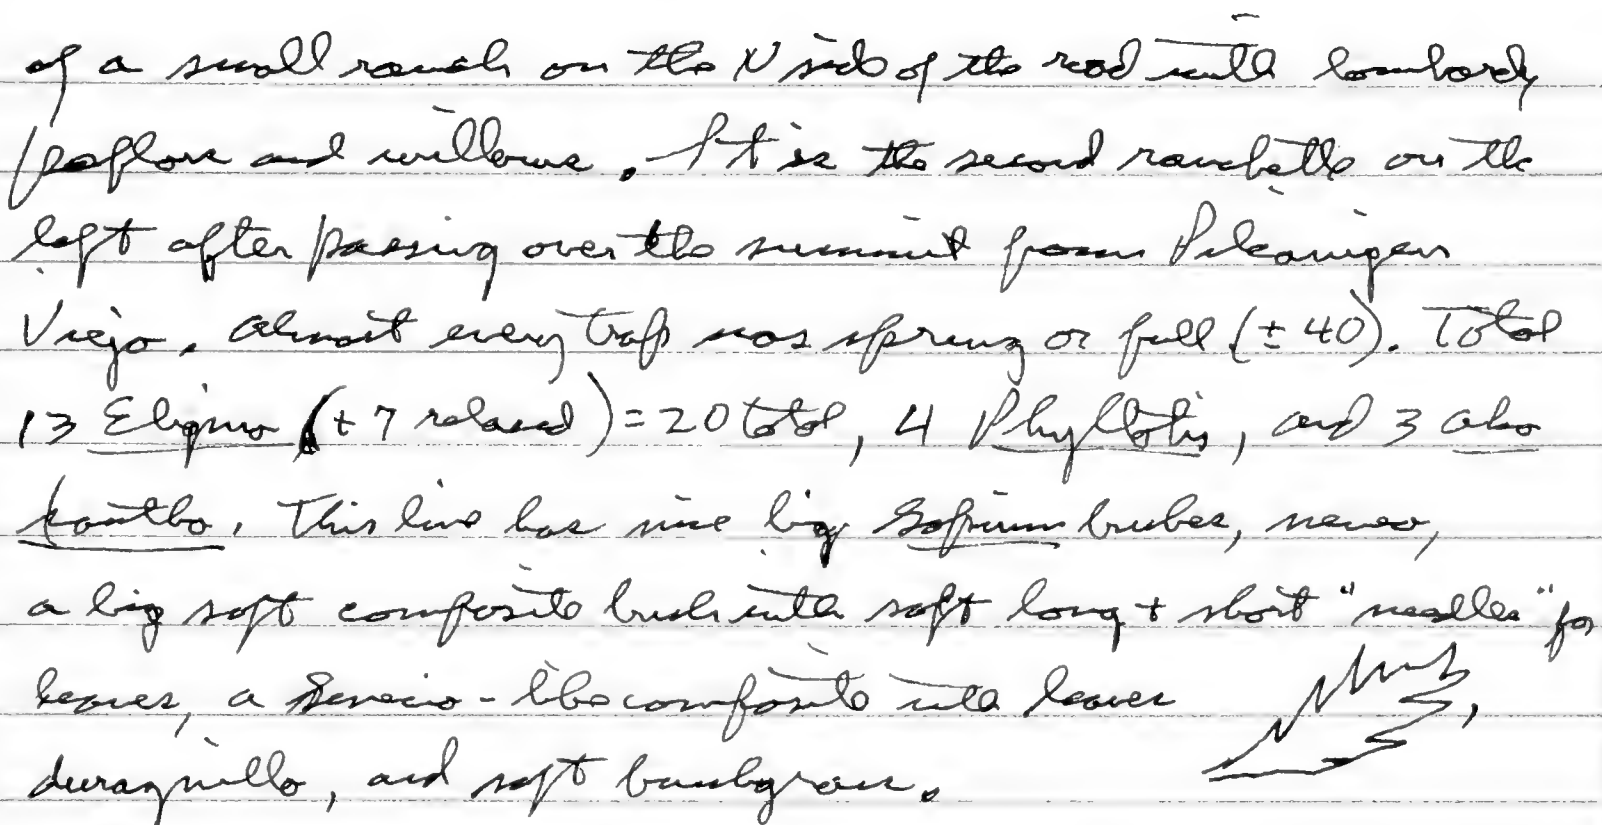 of a small ranch on the N side of the road with lombardy
poplars and willows. It is the second ranchette on the
left after passing over the summit from Pilcaniyeu
Viejo. Almost every trap was sprung or full (± 40). Total
13 Eligmo (+ 7 released) = 20 total, 4 Phyllotis, and 3 abo
xantho. This line has nice big bushes, neneo,
a big soft composite bush with soft long + short "needles" for
leaves, a Senecio-like composite with leaves ,
duraznillo, and soft bunchgrass.